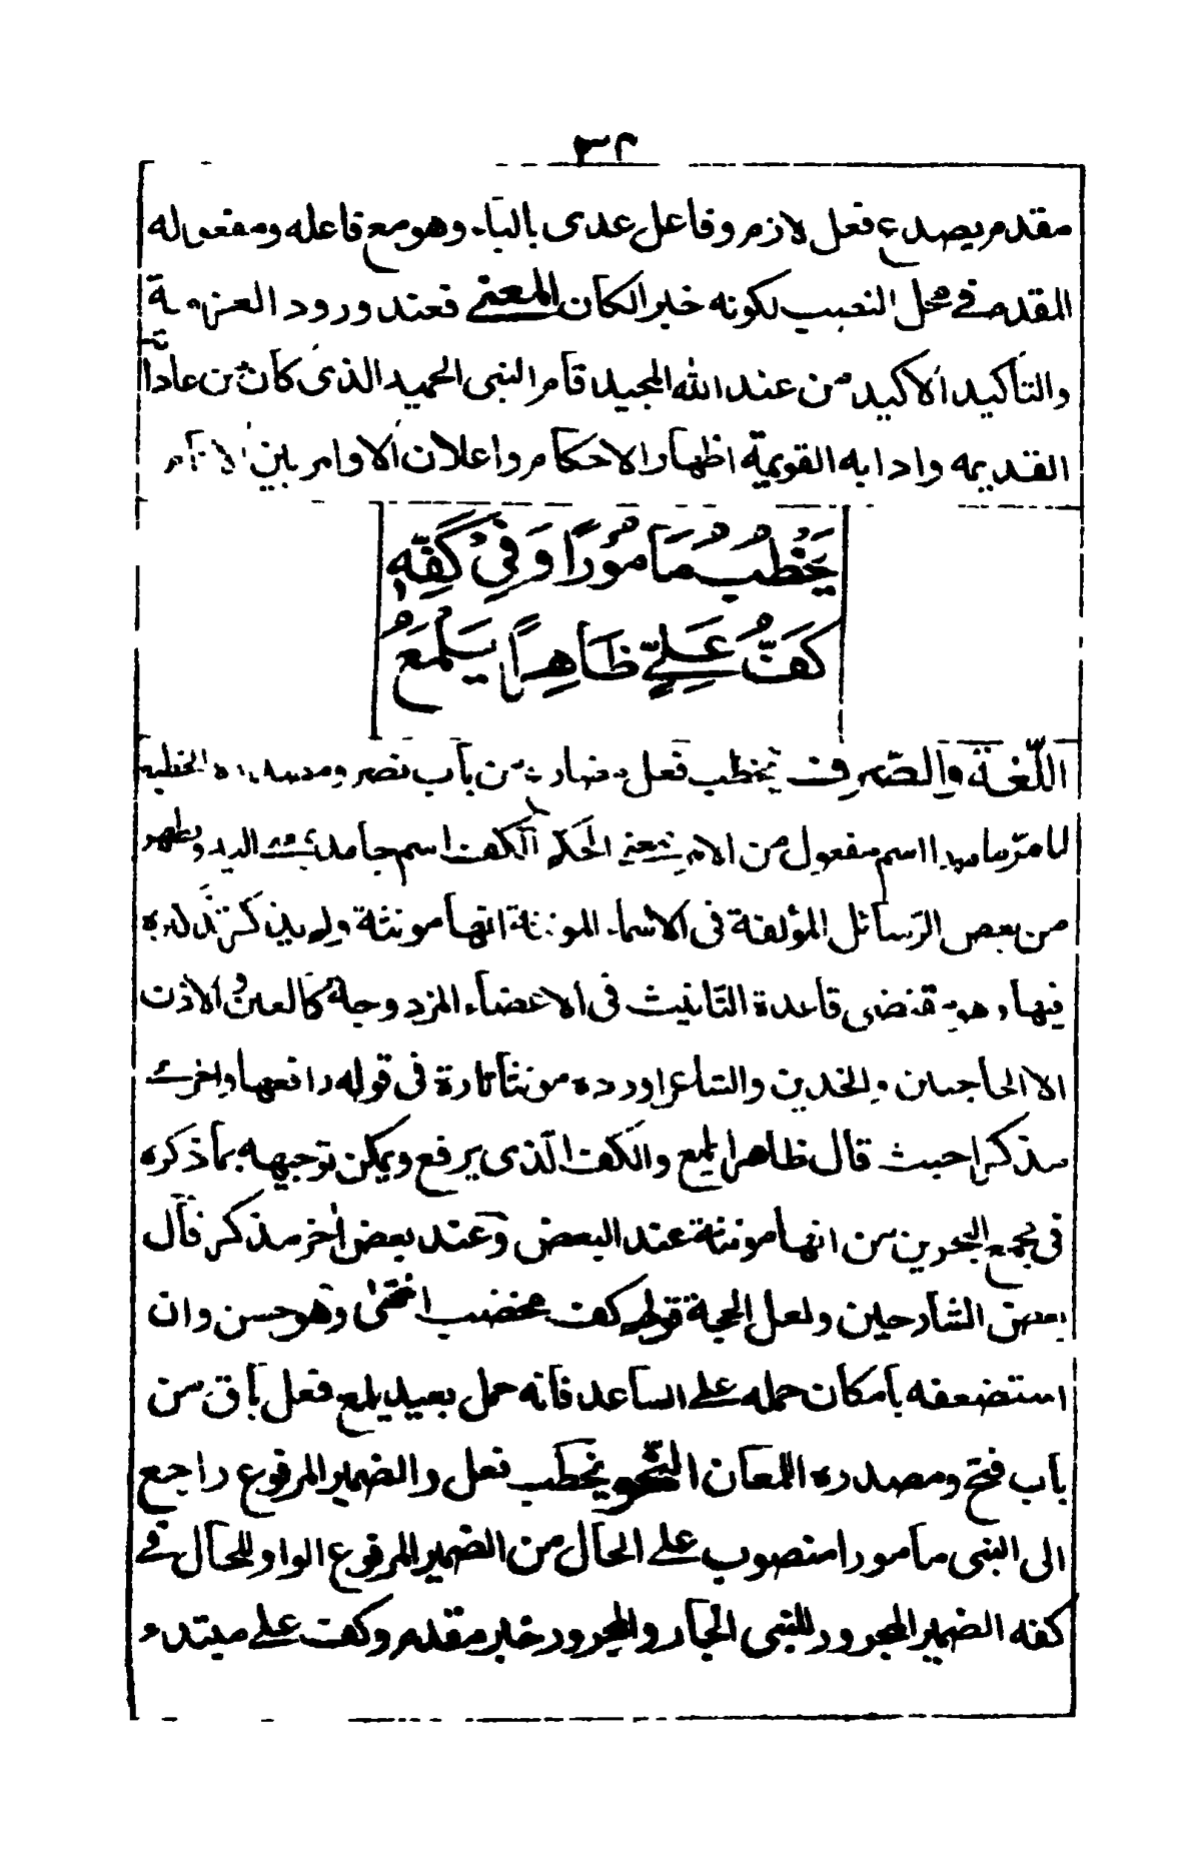 ٣٢
مقدم يصدع فعل لازم وفاعل عدى بالباء وهو مع فاعله ومفعوله
المقدم في محل النصب لكونه خبر الكان المعنى فعند ورود العزيمة
والتأكيد الاكيد من عند الله المجيد قام النبي الحميد الذى كان من عاداته
القديمه وادابه القويمة اظهار الاحكام واعلان الاوامر بين الانام
يَخْطُبُ مَامُوْرًا وَفِيْ كَفِّهٖ
كَفُّ عَلِيٍّ ظَاهِرًا يَلْمَعُ
اللّغة والصّرف يخطب فعل مضارع من باب نصر ومصدره الخطبه
لما مرّ مامورا اسم مفعول من الامر بمعنى الحكم الكف اسم جامد بمعنى اليد ويظهر
من بعض الرّسائل المؤلفة فى الاسماء المونثة انها مونثة ولم يذكر تذكيره
فيها وهو مقتضى قاعدة التانيث فى الاعضاء المزدوجة كالعين والاذن
الا الحاجبين والخدين والشاعر اورده مونثا تارة فى قوله رافعها واخرى
مذكرا حيث قال ظاهرا يلمع والكف الّذى يرفع ويمكن توجيهه بما ذكره
فى مجمع البحرين من انها مونثة عند البعض وعند بعض اخر مذكر قال
بعض الشارحين ولعل الحجة قولهم كف مخضب انتهى وهو حسن وان
استضعفه بامكان حمله على الساعد فانه حمل بعيد يلمع فعل باق من
باب فتح ومصدره اللمعان النّحو يخطب فعل والضمير المرفوع راجع
الى النبى مامورا منصوب على الحال من الضمير المرفوع الواو للحال فى
كفه الضمير المجرور للنبى الجار والمجرور خبر مقدم وكف على مبتدء